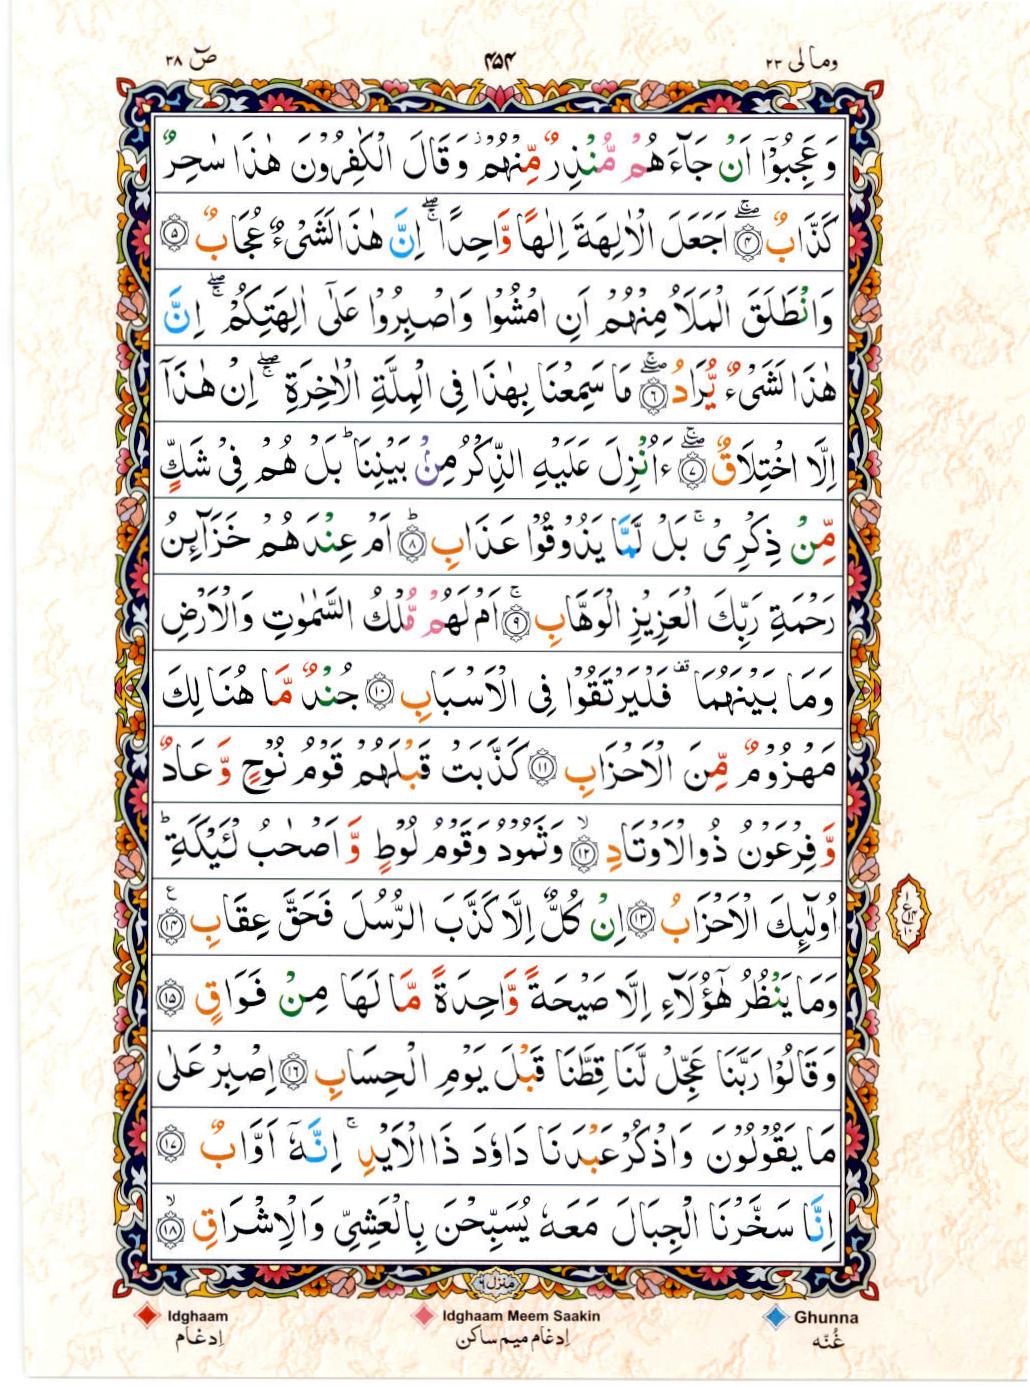 ومالی ۲۳
۴۵۴
صٓ ۳۸
وَعَجِبُوْۤا اَنْ جَآءَهُمْ مُّنْذِرٌ مِّنْهُمْ ؗ وَقَالَ الْكٰفِرُوْنَ هٰذَا سٰحِرٌ
كَذَّابٌ ۖۚ ﴿۴﴾ اَجَعَلَ الْاٰلِهَةَ اِلٰهًا وَّاحِدًا ۖۚ اِنَّ هٰذَا لَشَیْءٌ عُجَابٌ ﴿۵﴾
وَانْطَلَقَ الْمَلَاُ مِنْهُمْ اَنِ امْشُوْا وَاصْبِرُوْا عَلٰۤی اٰلِهَتِكُمْ ۖۚ اِنَّ
هٰذَا لَشَیْءٌ یُّرَادُ ۖۚ ﴿۶﴾ مَا سَمِعْنَا بِهٰذَا فِی الْمِلَّةِ الْاٰخِرَةِ ۖۚ اِنْ هٰذَاۤ
اِلَّا اخْتِلَاقٌ ۖۚ ﴿۷﴾ ءَاُنْزِلَ عَلَیْهِ الذِّكْرُ مِنْۢ بَیْنِنَا ؕ بَلْ هُمْ فِیْ شَكٍّ
مِّنْ ذِكْرِیْ ۚ بَلْ لَّمَّا یَذُوْقُوْا عَذَابِ ؕ ﴿۸﴾ اَمْ عِنْدَهُمْ خَزَآئِنُ
رَحْمَةِ رَبِّكَ الْعَزِیْزِ الْوَهَّابِ ۚ ﴿۹﴾ اَمْ لَهُمْ مُّلْكُ السَّمٰوٰتِ وَالْاَرْضِ
وَمَا بَیْنَهُمَا ۫ فَلْیَرْتَقُوْا فِی الْاَسْبَابِ ﴿۱۰﴾ جُنْدٌ مَّا هُنَالِكَ
مَهْزُوْمٌ مِّنَ الْاَحْزَابِ ﴿۱۱﴾ كَذَّبَتْ قَبْلَهُمْ قَوْمُ نُوْحٍ وَّعَادٌ
وَّفِرْعَوْنُ ذُو الْاَوْتَادِ ۙ ﴿۱۲﴾ وَثَمُوْدُ وَقَوْمُ لُوْطٍ وَّاَصْحٰبُ لْـَٔیْكَةِ ؕ
اُولٰٓئِكَ الْاَحْزَابُ ﴿۱۳﴾ اِنْ كُلٌّ اِلَّا كَذَّبَ الرُّسُلَ فَحَقَّ عِقَابِ ﴿۱۴﴾ ع
وَمَا یَنْظُرُ هٰۤؤُلَآءِ اِلَّا صَیْحَةً وَّاحِدَةً مَّا لَهَا مِنْ فَوَاقٍ ﴿۱۵﴾
وَقَالُوْا رَبَّنَا عَجِّلْ لَّنَا قِطَّنَا قَبْلَ یَوْمِ الْحِسَابِ ﴿۱۶﴾ اِصْبِرْ عَلٰی
مَا یَقُوْلُوْنَ وَاذْكُرْ عَبْدَنَا دَاوٗدَ ذَا الْاَیْدِ ۚ اِنَّهٗۤ اَوَّابٌ ﴿۱۷﴾
اِنَّا سَخَّرْنَا الْجِبَالَ مَعَهٗ یُسَبِّحْنَ بِالْعَشِیِّ وَالْاِشْرَاقِ ۙ ﴿۱۸﴾
منزل ۶
Idghaam
Idghaam Meem Saakin
Ghunna
اِدغام
اِدغام میم ساکن
غُنّه